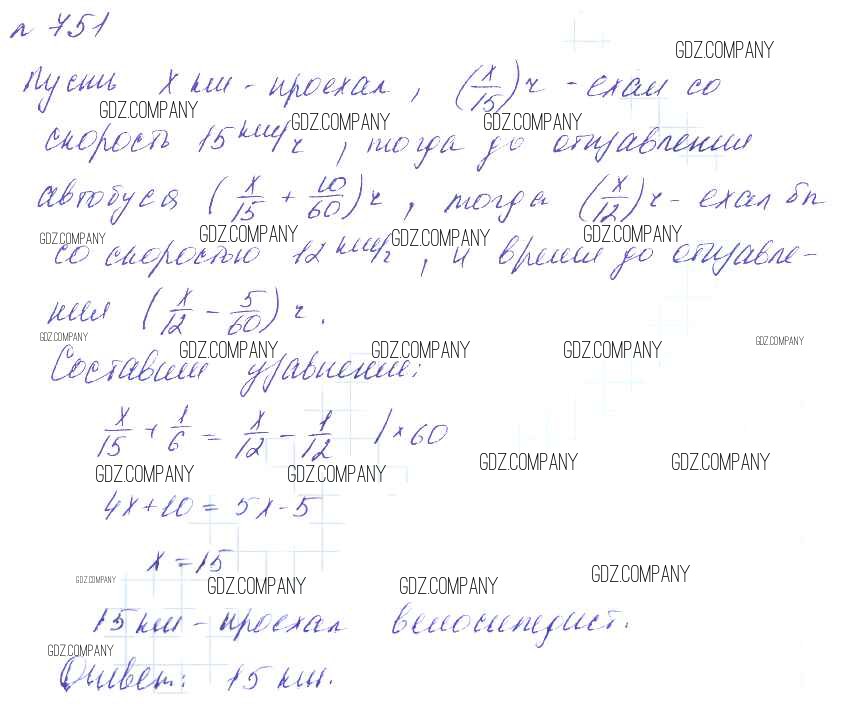 № 751
GDZ.COMPANY
Пусть x км - проехал, (x/15) ч - ехал со
GDZ.COMPANY GDZ.COMPANY GDZ.COMPANY
скорость 15 км/ч, тогда до отправления
автобуса (x/15 + 10/60) ч, тогда (x/12) ч - ехал бы
GDZ.COMPANY GDZ.COMPANY GDZ.COMPANY GDZ.COMPANY
со скоростью 12 км/ч, и время до отправле-
ния (x/12 - 5/60) ч.
GDZ.COMPANY GDZ.COMPANY GDZ.COMPANY GDZ.COMPANY GDZ.COMPANY
Составим уравнение:
x/15 + 1/6 = x/12 - 1/12 | × 60
GDZ.COMPANY GDZ.COMPANY GDZ.COMPANY GDZ.COMPANY
4x+10 = 5x-5
x = 15
GDZ.COMPANY GDZ.COMPANY GDZ.COMPANY GDZ.COMPANY
15 км - проехал велосипедист.
GDZ.COMPANY
Ответ: 15 км.